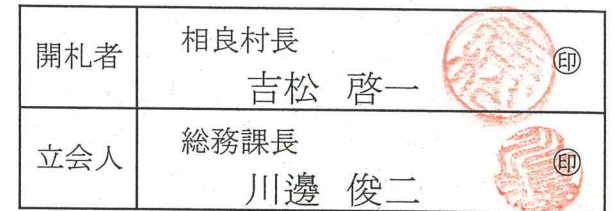 開札者
相良村長
吉松 啓一 ㊞
立会人
総務課長
川邊 俊二 ㊞